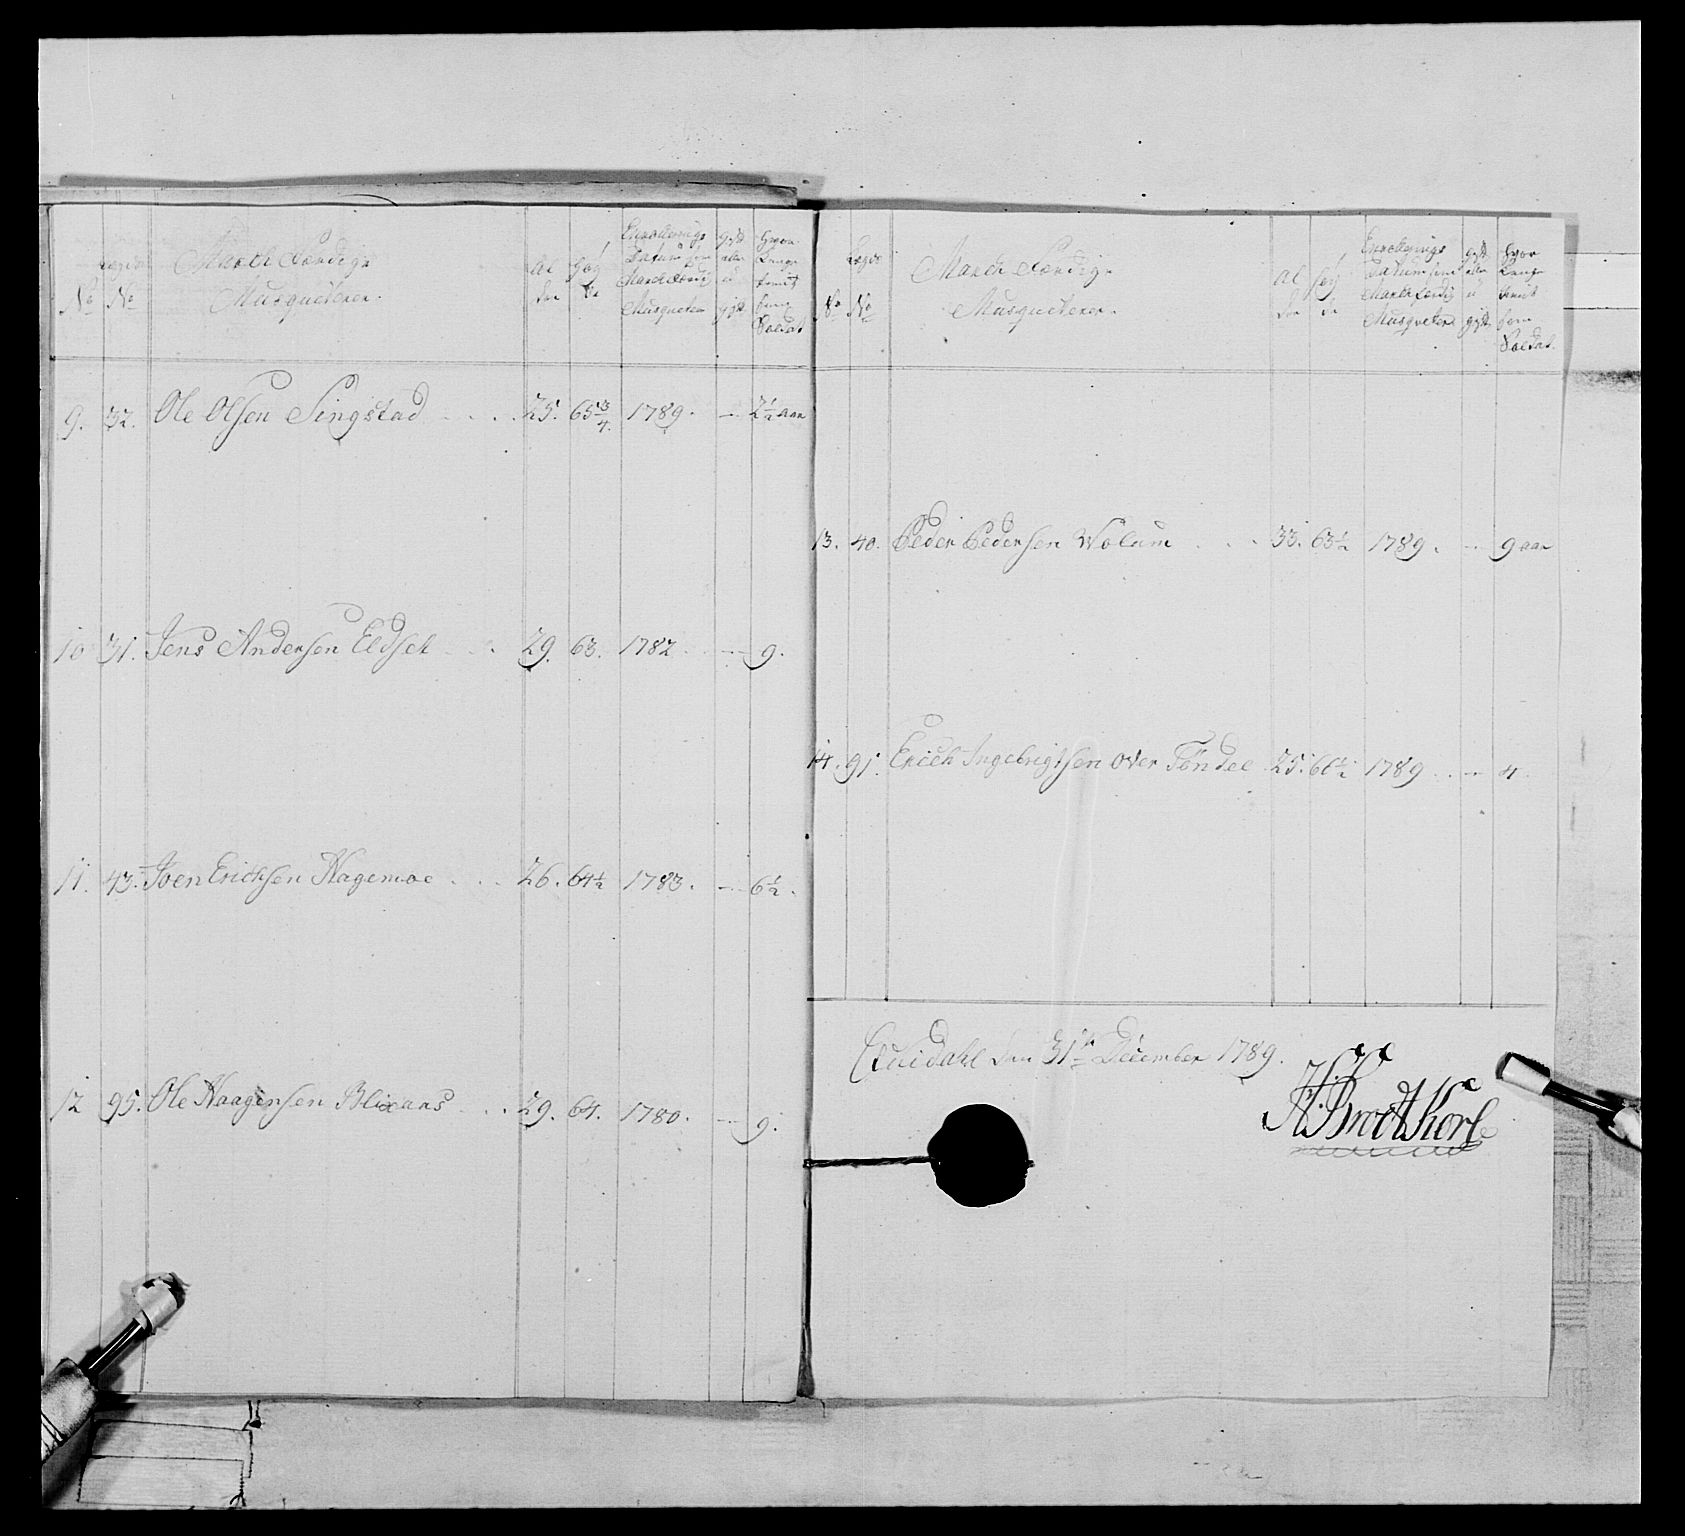 No
Lægds No
March Færdige Musqueterer.
Al der
Høy de
Enrollerings Datum som March Færdig Musqueteer
gift eller u gift
Hvor Længe tient som Soldat
9. 32. Ole Olsen Singstad . . . 25. 65 3/4. 1789. — 2 1/2 aar
10 31. Jens Andersen Eldset . . . 29. 63. 1782 . — 9.
11. 43. Joen Ericksen Hagemoe . . . 26. 64 1/2 1783. — 6 1/2.
12 95. Ole Haagensen Blixaas . . . 29. 64. 1780. — 9.
No
Lægds No
March Færdige Musqueterer.
Al der
Høy de
Enrollerings Datum som March Færdig Musqueteer
gift eller u gift
Hvor Længe tient som Soldat.
13. 40. Peder Pedersen Wolum . . . 33. 63 1/2 1789. — 9 aar
14. 91. Erich Ingebrigtsen over Tøndee 25. 1789 . — 4.
den 31te December 1789.